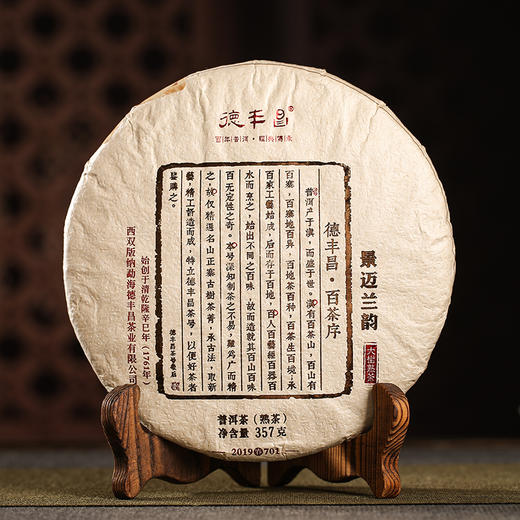 德丰昌®
百年普洱·经典传承
景迈兰韵
大樹熟茶
德丰昌·百茶序
普洱产于滇，而盛于世。滇有百茶山，百山有
百寨，百寨地百异，百地茶百种，百茶生百境，承
百家工藝始成，后而存于百地，百人百藝經百器百
水而烹之，始出不同之百味，故而造就其百山百味
百无定性之奇。本号深知制茶之不易，難为广而精
之，故仅精選名山正寨古樹茶菁，承古法，取新
藝，精工督造而成，特立德丰昌茶号，以便好茶者
鉴購之。
德丰昌茶号敬启
始创于清乾隆辛巳年（1761年）
西双版纳勐海德丰昌茶业有限公司
普洱茶（熟茶）
净含量：357克
2019 701